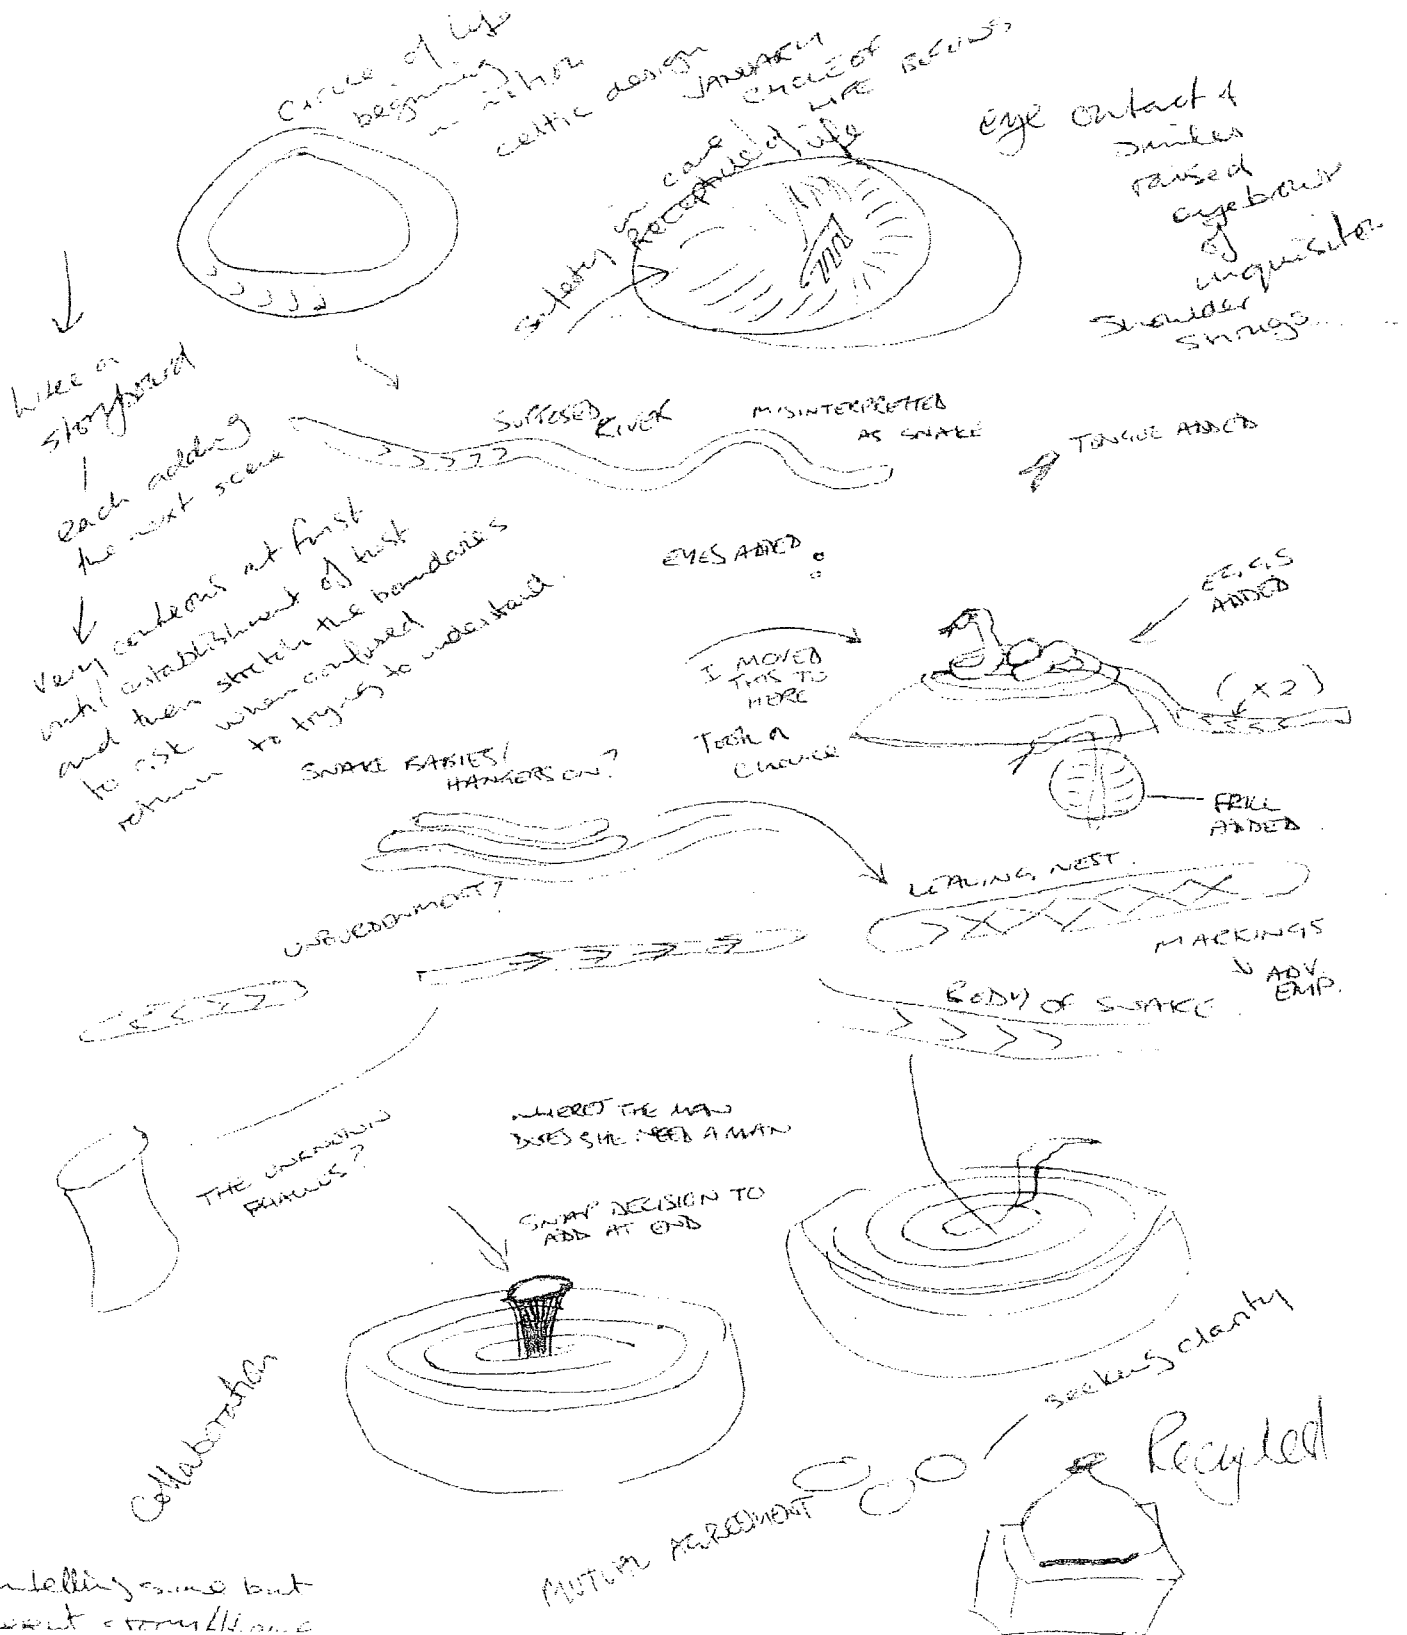 circle of life
beginning
celtic design
JANUARY
CYCLE OF
LIFE BEGINS
safety in cave/
Receptive of life
eye contact &
smiles
raised
eyebrow
of
inquisitor
Shoulder
shrugs...
Like a
storyboard
each adding
the next scene
Very
at first
until establishment of trust
and then stretch the boundaries
to ask when confused
return to trying to understand.
SUPPOSED
RIVER
MISINTERPRETTED
AS SNAKE
TONGUE ADDED
EYES ADDED
EGGS
ADDED
I MOVED
THIS TO
HERE
Took a
chance
(x2)
FRILL
ADDED.
SNAKE BABIES/
HANGERS ON?
UNBURDENMENT?
LEAVING NEST.
MARKINGS
ADV.
EMP.
BODY OF SNAKE.
THE UNKNOWN
PHALLUS?
WHERE'S THE MAN
DOES SHE NEED A MAN
SNAP DECISION TO
ADD AT END
Collaboration
seeking clarity
MUTUAL AGREEMENT
Recycled
telling same but